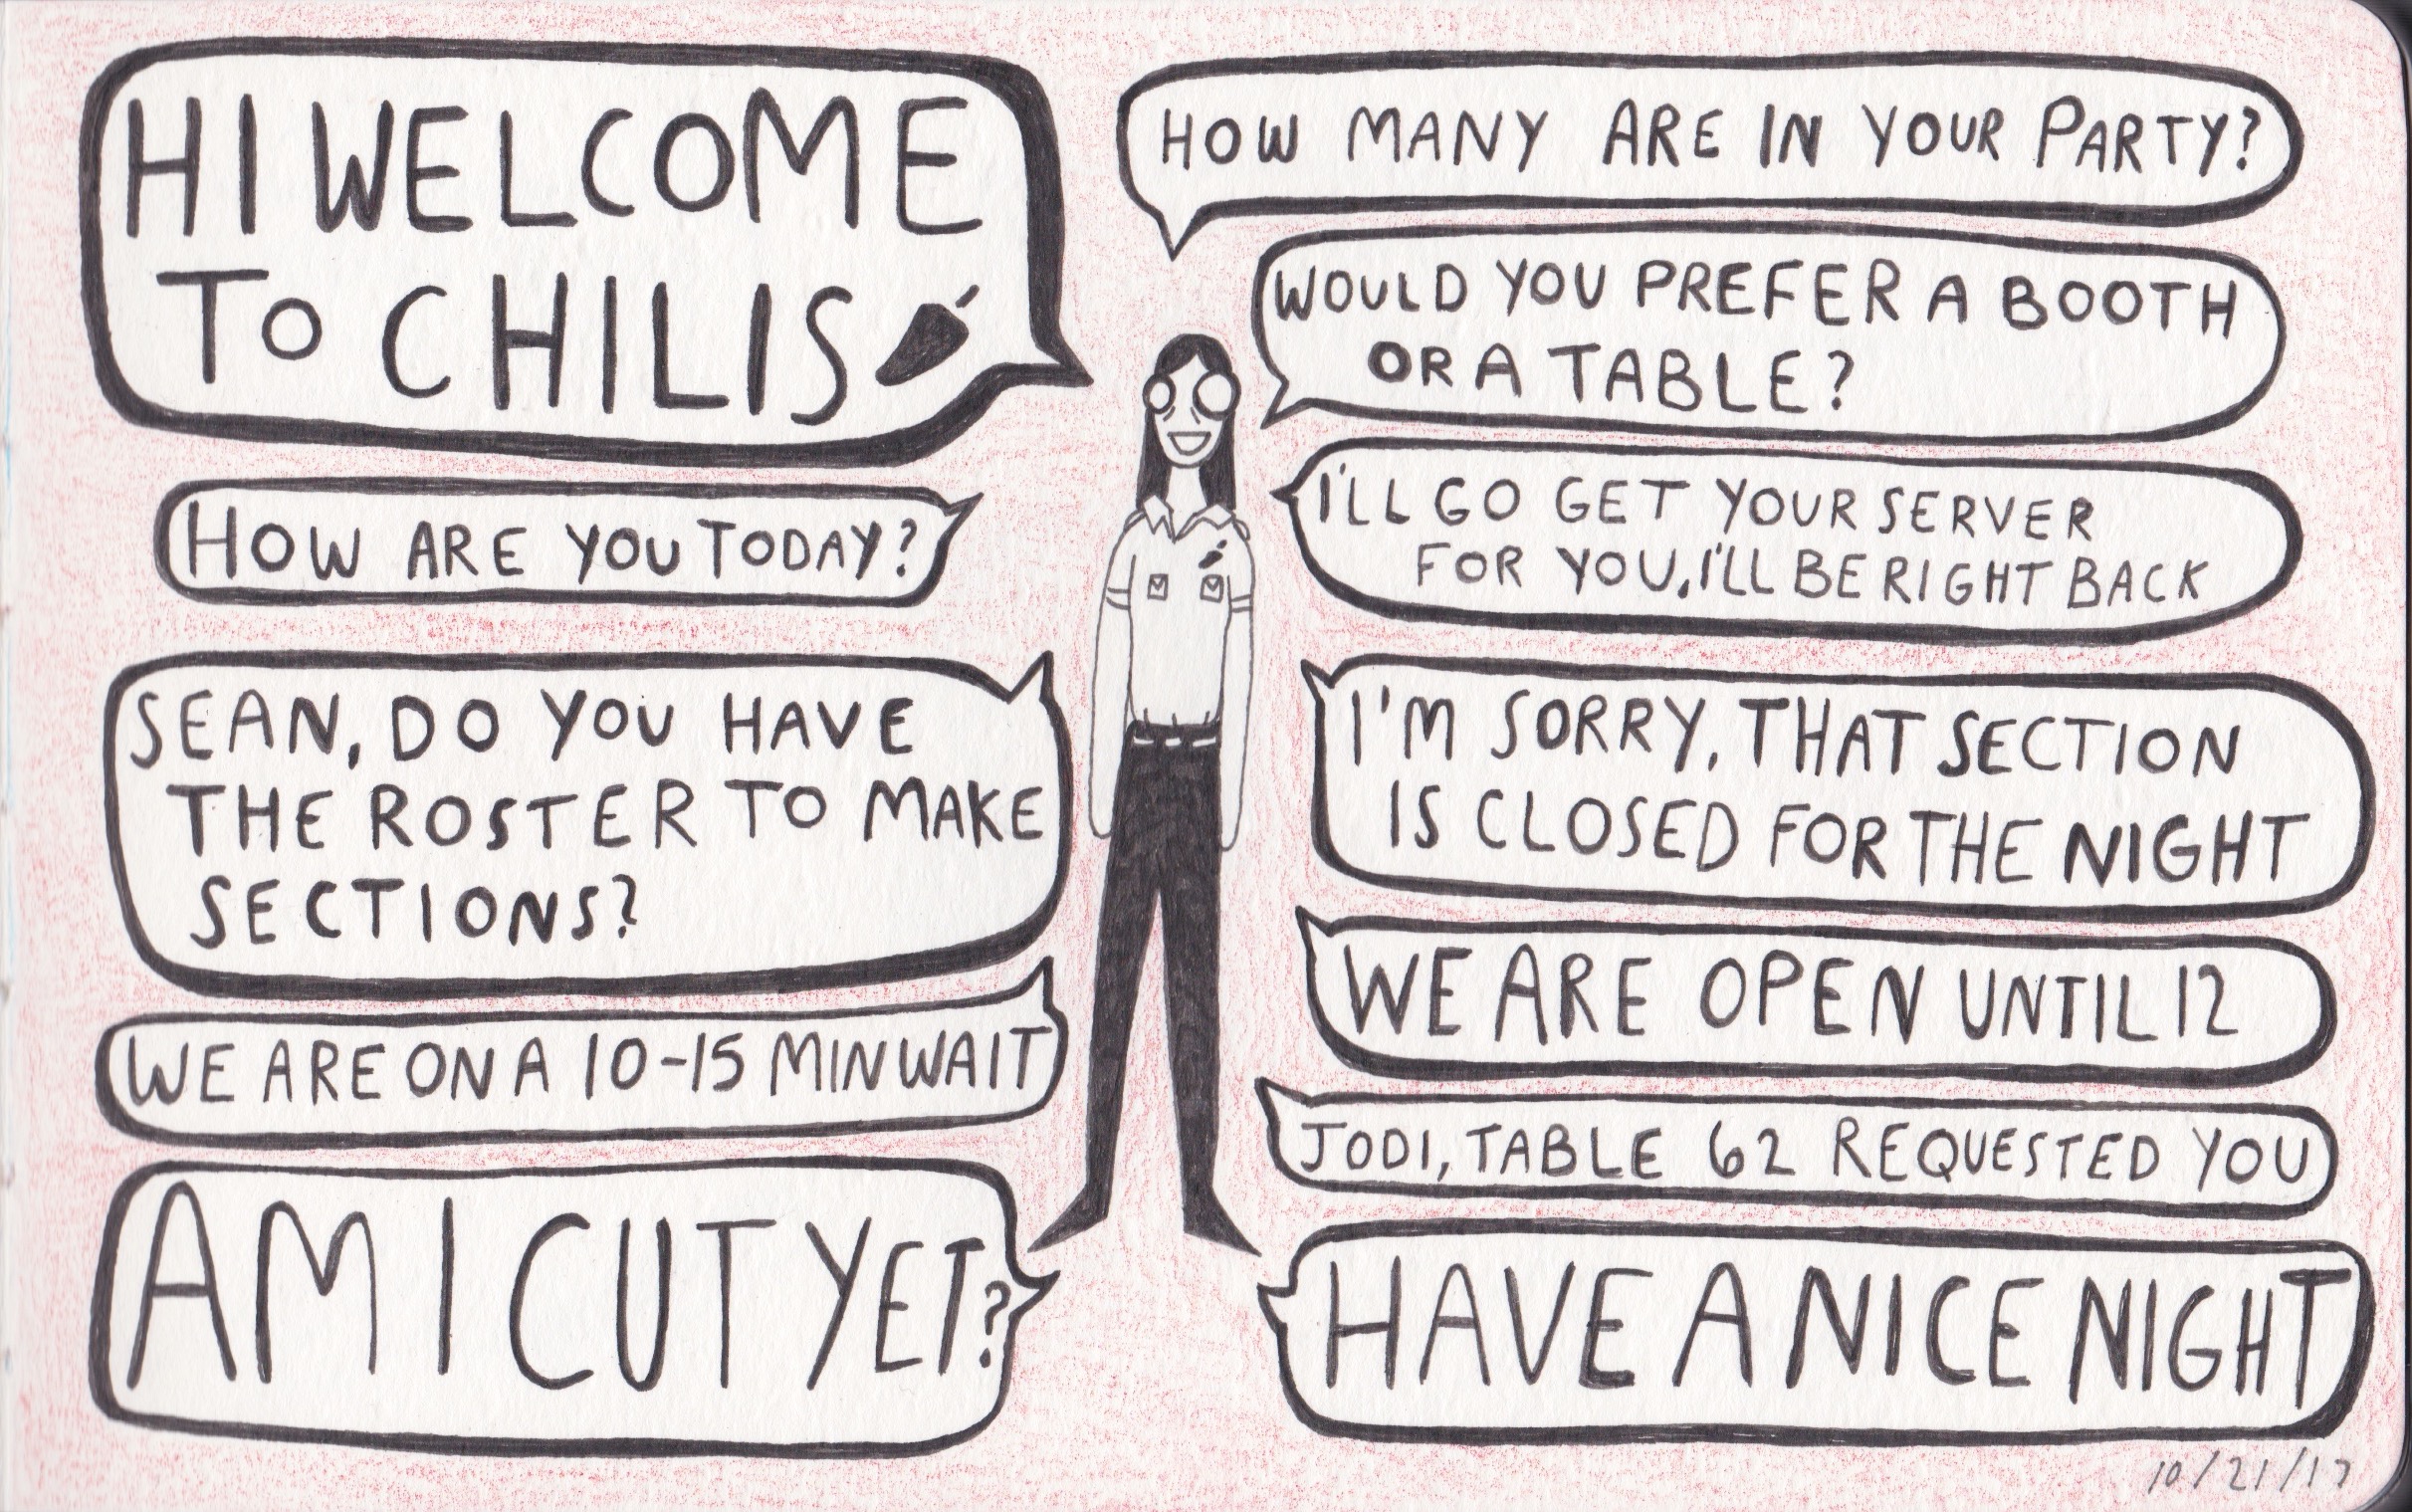 HI WELCOME
TO CHILIS
HOW ARE YOU TODAY?
SEAN, DO YOU HAVE
THE ROSTER TO MAKE
SECTIONS?
WE ARE ON A 10-15 MIN WAIT
AM I CUT YET?
HOW MANY ARE IN YOUR PARTY?
WOULD YOU PREFER A BOOTH
OR A TABLE?
I'LL GO GET YOUR SERVER
FOR YOU, I'LL BE RIGHT BACK
I'M SORRY, THAT SECTION
IS CLOSED FOR THE NIGHT
WE ARE OPEN UNTIL 12
JODI, TABLE 62 REQUESTED YOU
HAVE A NICE NIGHT
10/21/17